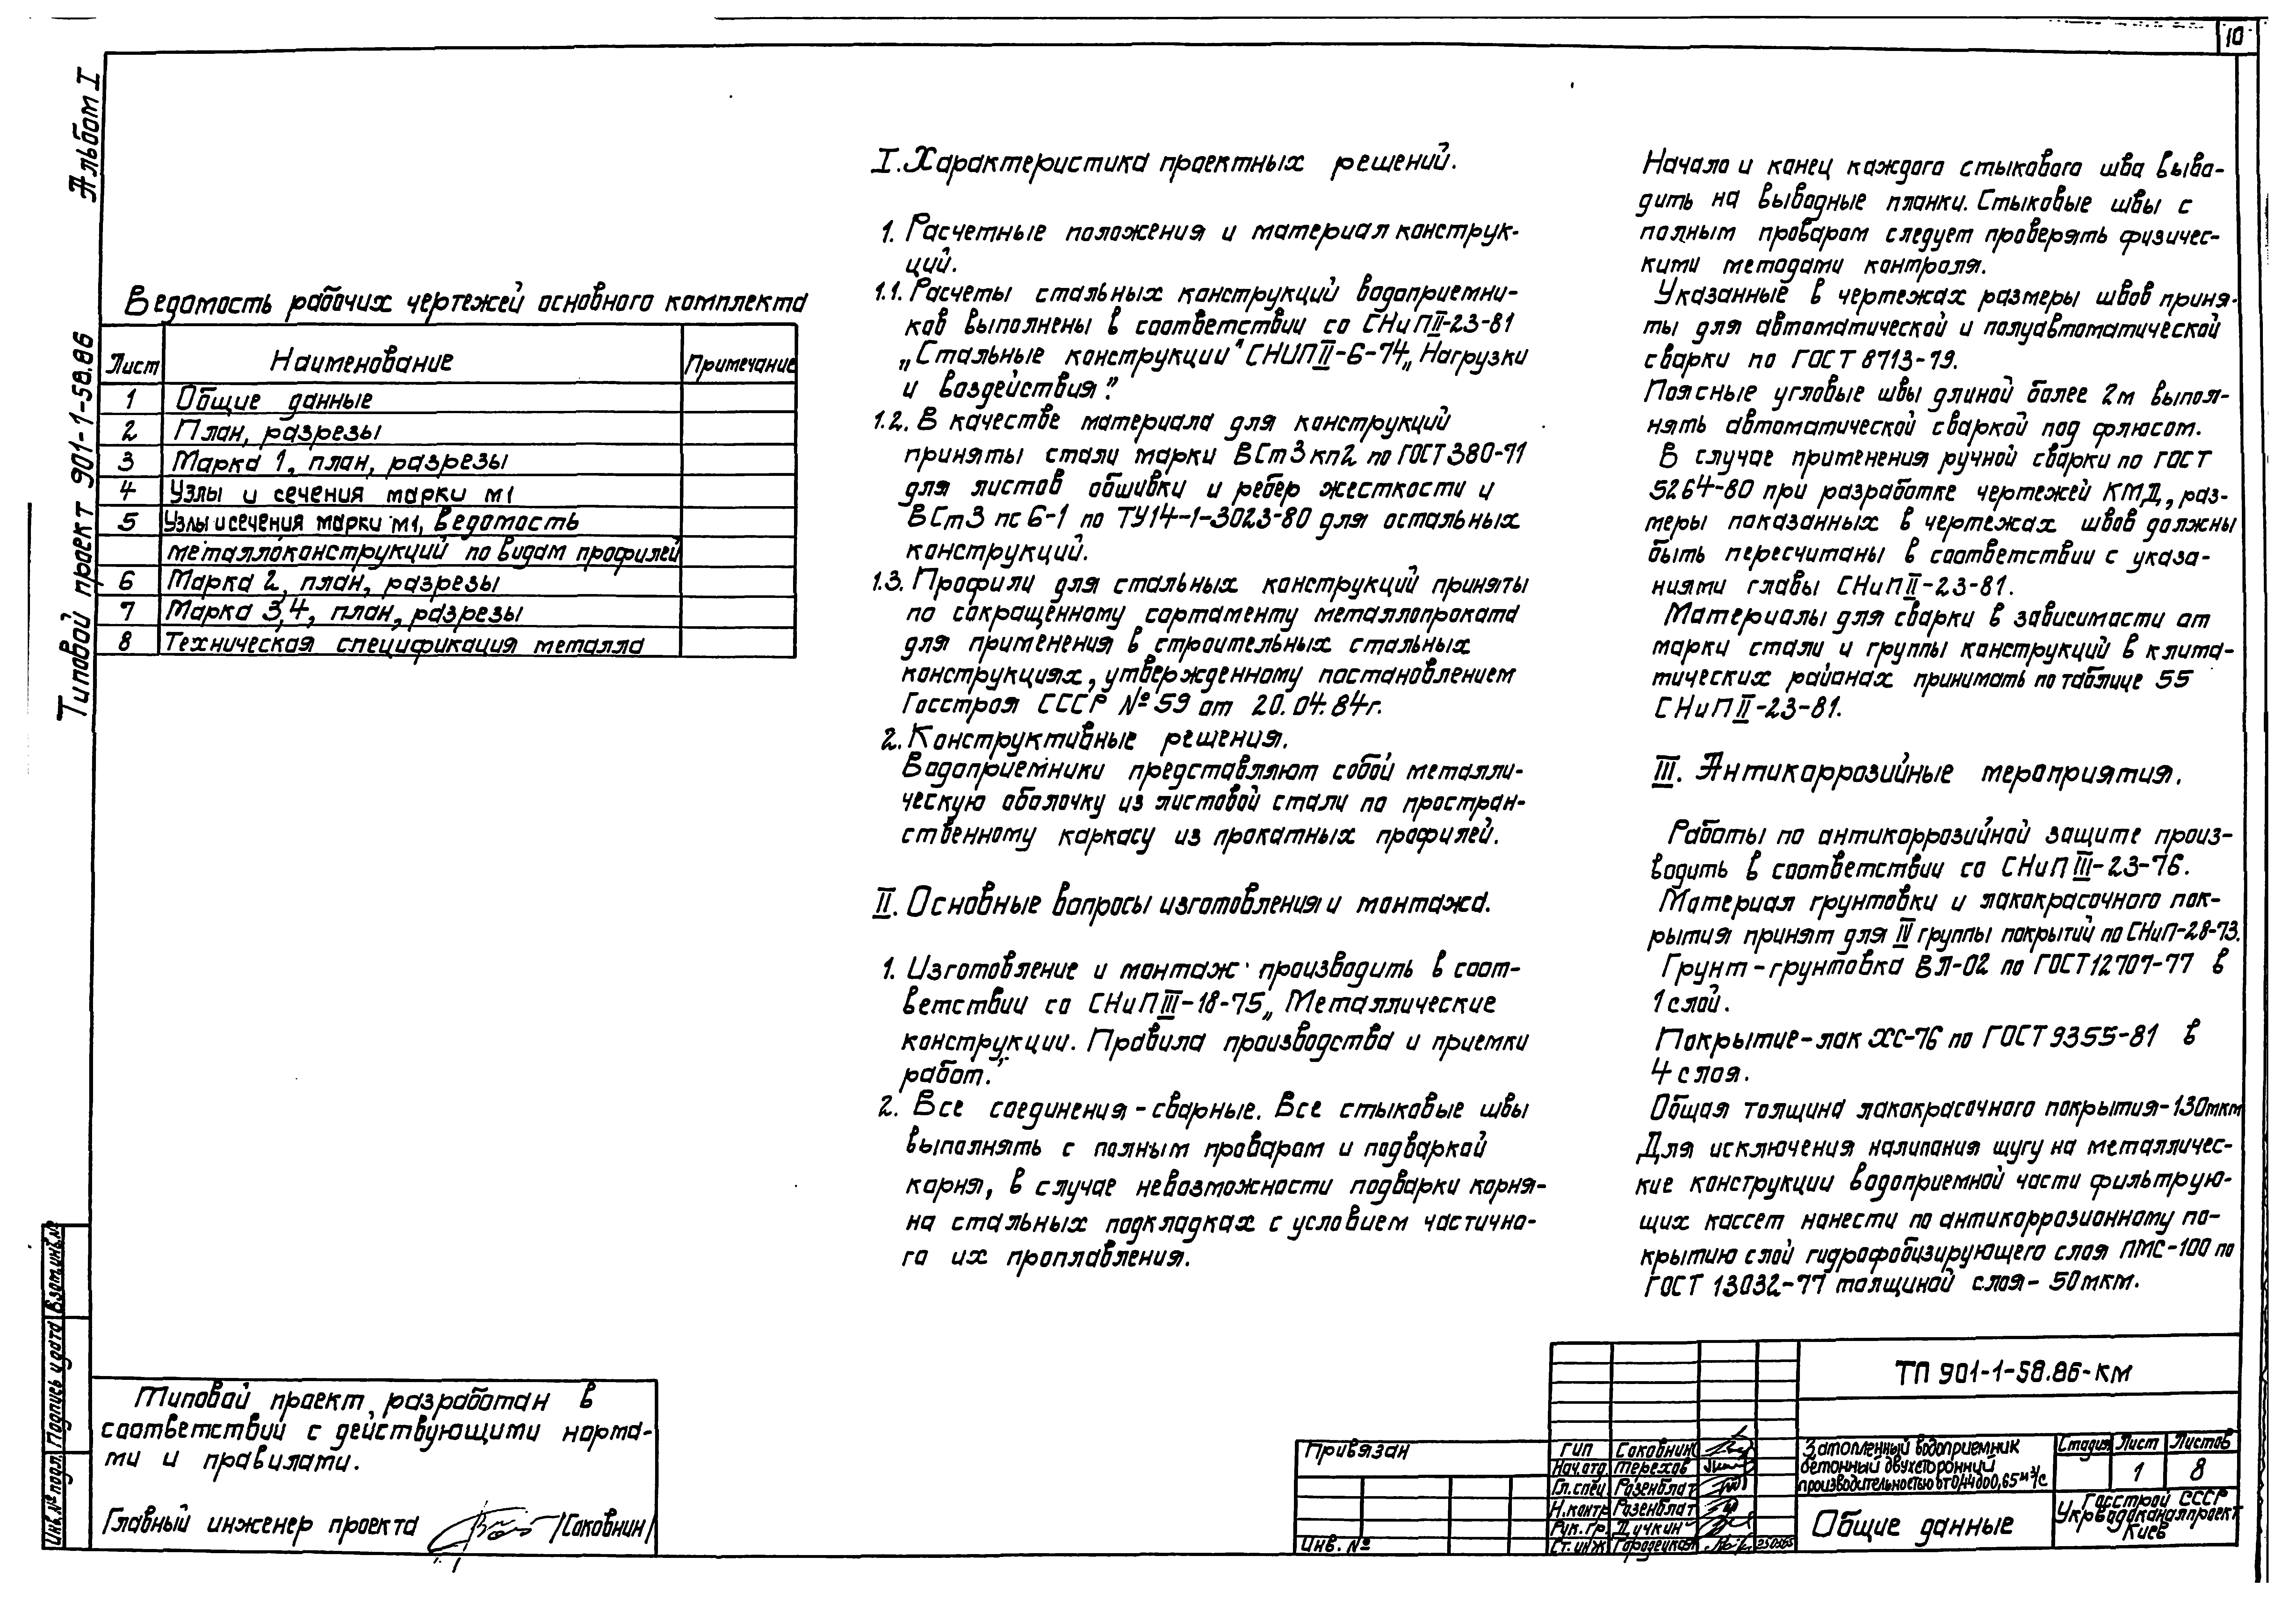 10
Альбом I
Типовой проект 901-1-58.86
Ведомость рабочих чертежей основного комплекта
Лист Наименование Примечание
1 Общие данные
2 План, разрезы
3 Марка 1, план, разрезы
4 Узлы и сечения марки м1
5 Узлы и сечения марки м1, ведомость
металлоконструкций по видам профилей
6 Марка 2, план, разрезы
7 Марка 3,4, план, разрезы
8 Техническая спецификация металла
I. Характеристика проектных решений.
1. Расчетные положения и материал конструк-
ций.
1.1. Расчеты стальных конструкций водоприемни-
ков выполнены в соответствии со СНиП II-23-81
„Стальные конструкции" СНИП II-6-74 „Нагрузки
и воздействия".
1.2. В качестве материала для конструкций
приняты стали марки ВСт3кп2 по ГОСТ 380-71
для листов обшивки и ребер жесткости и
ВСт3 пс 6-1 по ТУ14-1-3023-80 для остальных
конструкций.
1.3. Профили для стальных конструкций приняты
по сокращенному сортаменту металлопроката
для применения в строительных стальных
конструкциях, утвержденному постановлением
Госстроя СССР №59 от 20.04.84г.
2. Конструктивные решения.
Водоприемники представляют собой металли-
ческую оболочку из листовой стали по простран-
ственному каркасу из прокатных профилей.
II. Основные вопросы изготовления и монтажа.
1. Изготовление и монтаж производить в соот-
ветствии со СНиП III-18-75 „Металлические
конструкции. Правила производства и приемки
работ."
2. Все соединения - сварные. Все стыковые швы
выполнять с полным проваром и подваркой
корня, в случае невозможности подварки корня-
на стальных подкладках с условием частично-
го их проплавления.
Начало и конец каждого стыкового шва выво-
дить на выводные планки. Стыковые швы с
полным проваром следует проверять физичес-
кими методами контроля.
Указанные в чертежах размеры швов приня-
ты для автоматической и полуавтоматической
сварки по ГОСТ 8713-79.
Поясные угловые швы длиной более 2м выпол-
нять автоматической сваркой под флюсом.
В случае применения ручной сварки по ГОСТ
5264-80 при разработке чертежей КМД, раз-
меры показанных в чертежах швов должны
быть пересчитаны в соответствии с указа-
ниями главы СНиП II-23-81.
Материалы для сварки в зависимости от
марки стали и группы конструкций в клима-
тических районах принимать по таблице 55
СНиП II-23-81.
III. Антикоррозийные мероприятия.
Работы по антикоррозийной защите произ-
водить в соответствии со СНиП III-23-76.
Материал грунтовки и лакокрасочного пок-
рытия принят для IV группы покрытий по СНиП-28-73.
Грунт-грунтовка ВЛ-02 по ГОСТ 12707-77 в
1 слой.
Покрытие-лак ХС-76 по ГОСТ 9355-81 в
4 слоя.
Общая толщина лакокрасочного покрытия-130мкм
Для исключения налипания шугу на металличес-
кие конструкции водоприемной части фильтрую-
щих кассет нанести по антикоррозионному по-
крытию слой гидрофобизирующего слоя ПМС-100 по
ГОСТ 13032-77 толщиной слоя - 50мкм.
Типовой проект разработан в
соответствий с действующими норма-
ми и правилами.
Главный инженер проекта /Саковнин/
Инв.№ подл. Подпись и дата Взам.инв.№
Привязан
Инв. №
ГИП Саковнин
Нач.отд. Терехов
Гл.спец Розенблат
Н.контр Розенблат
Рук.гр. Дучкин
Ст.инж Городецкая
ТП 901-1-58.86-КМ
Затопленный водоприемник
бетонный двухсторонний
производительностью от 0,44 до 0,65 м³/с
Стадия Лист Листов
1 8
Общие данные
Госстрой СССР
Укрводоканалпроект
Киев